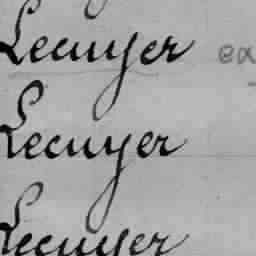 Lecuyer ex
Lecuyer
Lecuyer